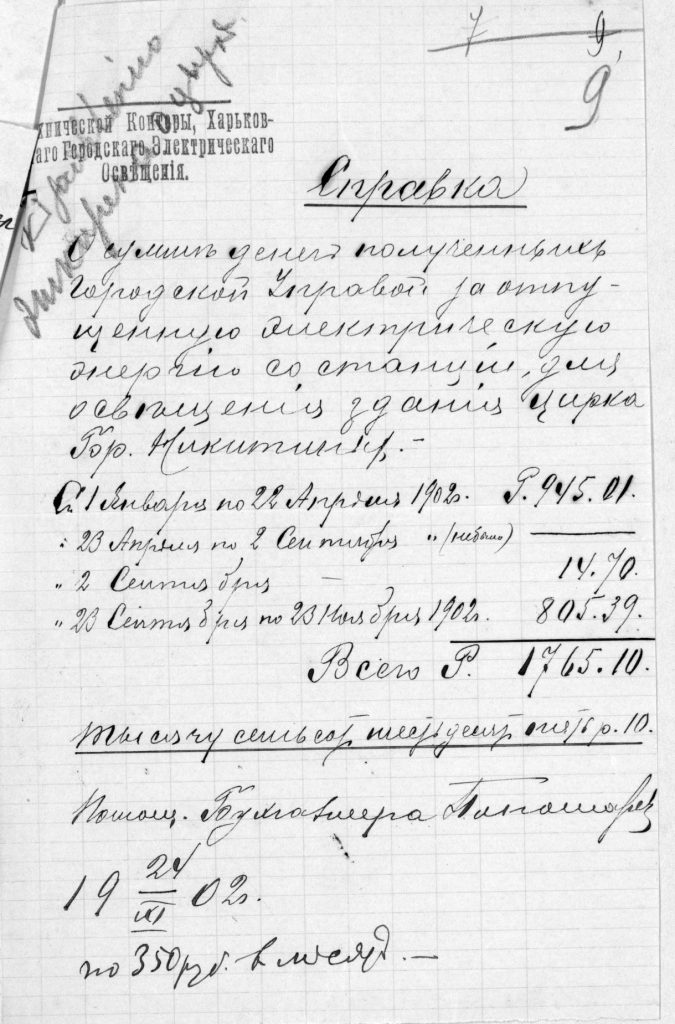 7 9,
9
хнической Конторы, Харьков-
каго Городскаго Электрическаго
Освѣщенія.
Справка
О суммѣ денегъ полученныхъ
Городской Управой за отпу-
щенную электрическую
энергію со станціи, для
освѣщенія зданія цирка
Бр. Никитиныхъ.-
Съ 1 Января по 22 Апрѣля 1902г. Р. 945.01.
" 23 Апрѣля по 2 Сентября " (небыло) —
" 2 Сентября — 14.70.
" 23 Сентября по 23 Ноября 1902г. 805.39.
Всего Р. 1765.10.
Тысячу семьсотъ шестьдесятъ пять р. 10.
Помощ. Бухгалтера
19 24/XI 02г.
по 350 руб. в мѣсяцъ. —